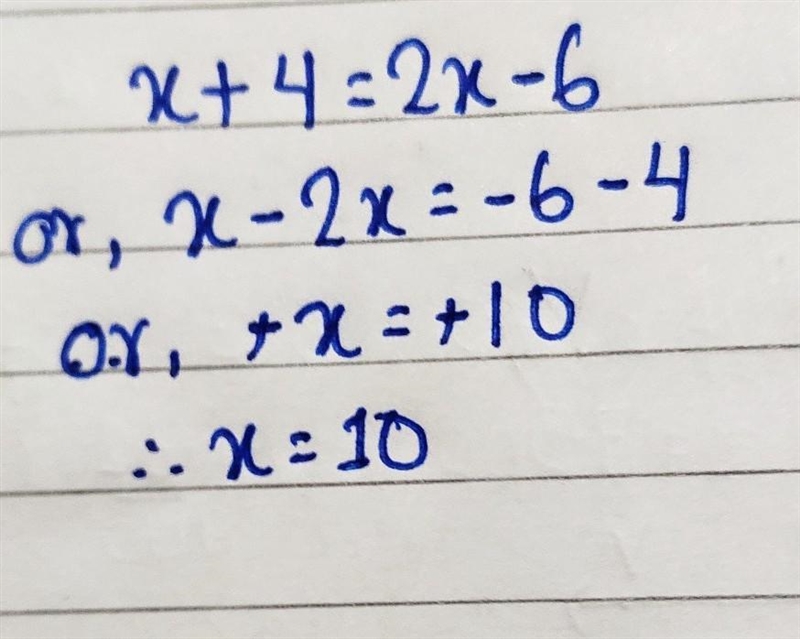 x + 4 = 2x - 6
or, x - 2x = -6 - 4
or, +x = +10
∴ x = 10